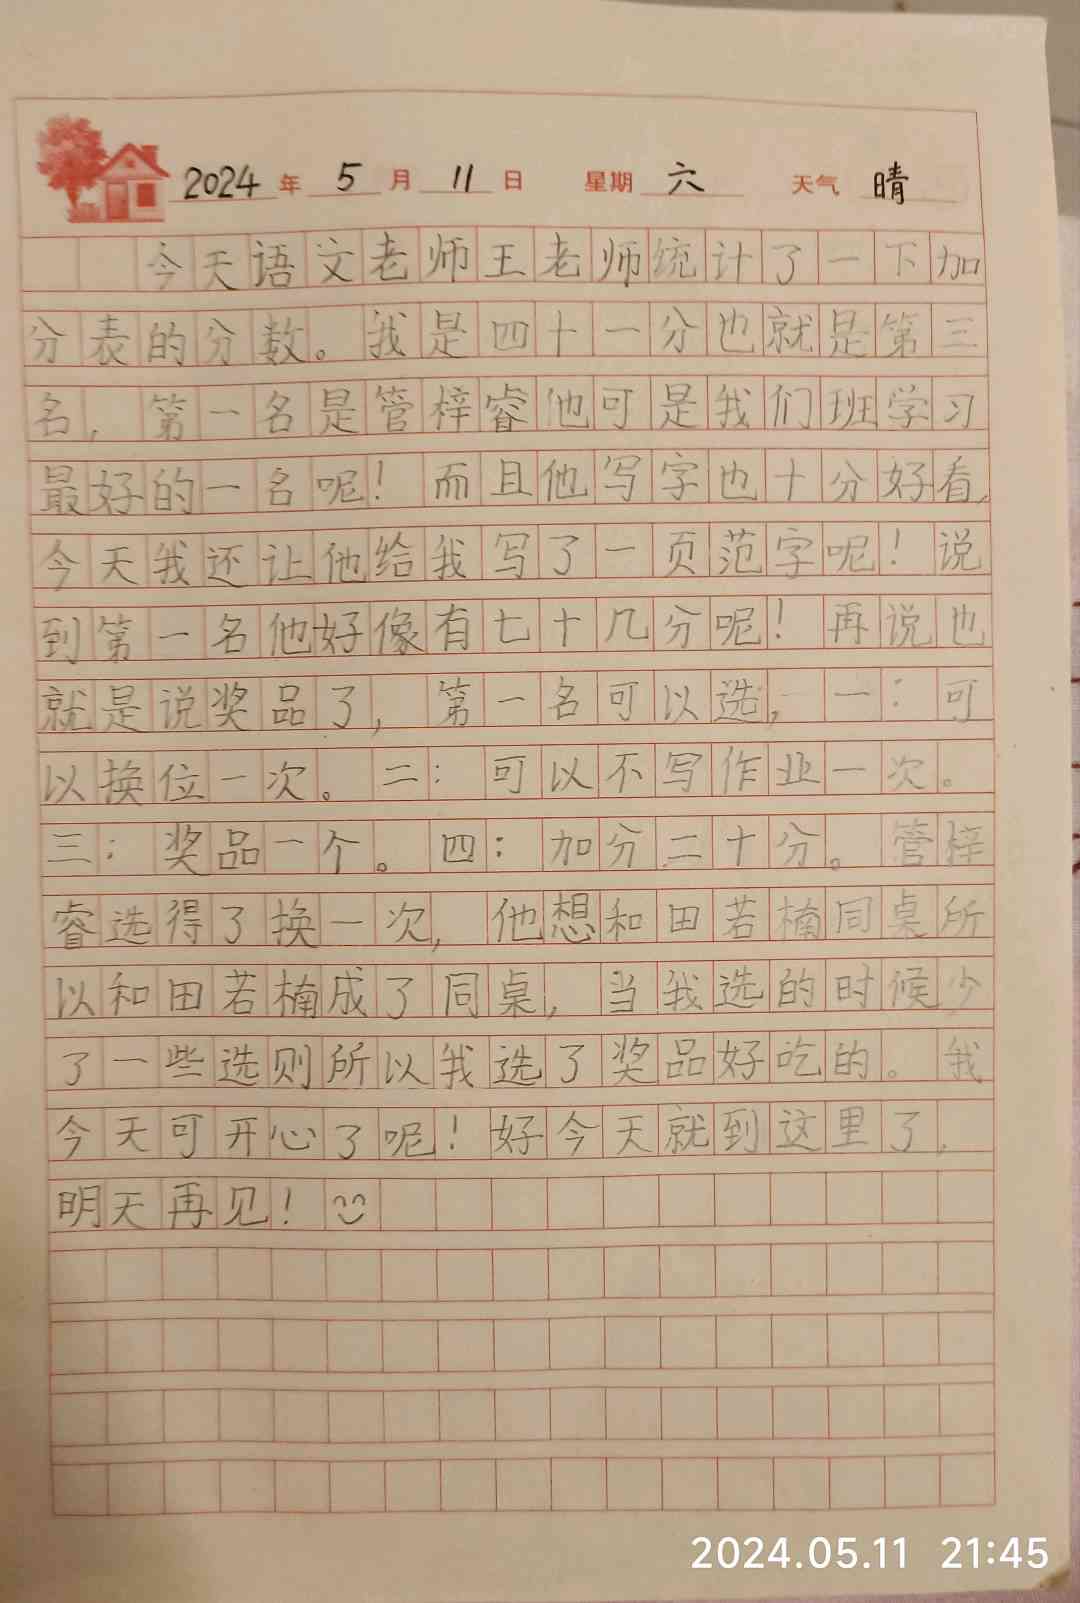 2024年5月11日 星期六 天气晴
今天语文老师王老师统计了一下加
分表的分数。我是四十一分也就是第三
名,第一名是管梓睿他可是我们班学习
最好的一名呢!而且他写字也十分好看,
今天我还让他给我写了一页范字呢!说
到第一名他好像有七十几分呢!再说也
就是说奖品了,第一名可以选,一:可
以换位一次。二:可以不写作业一次。
三:奖品一个。四:加分二十分。管梓
睿选得了换一次,他想和田若楠同桌所
以和田若楠成了同桌,当我选的时候少
了一些选则所以我选了奖品好吃的。我
今天可开心了呢!好今天就到这里了,
明天再见!
2024.05.11 21:45